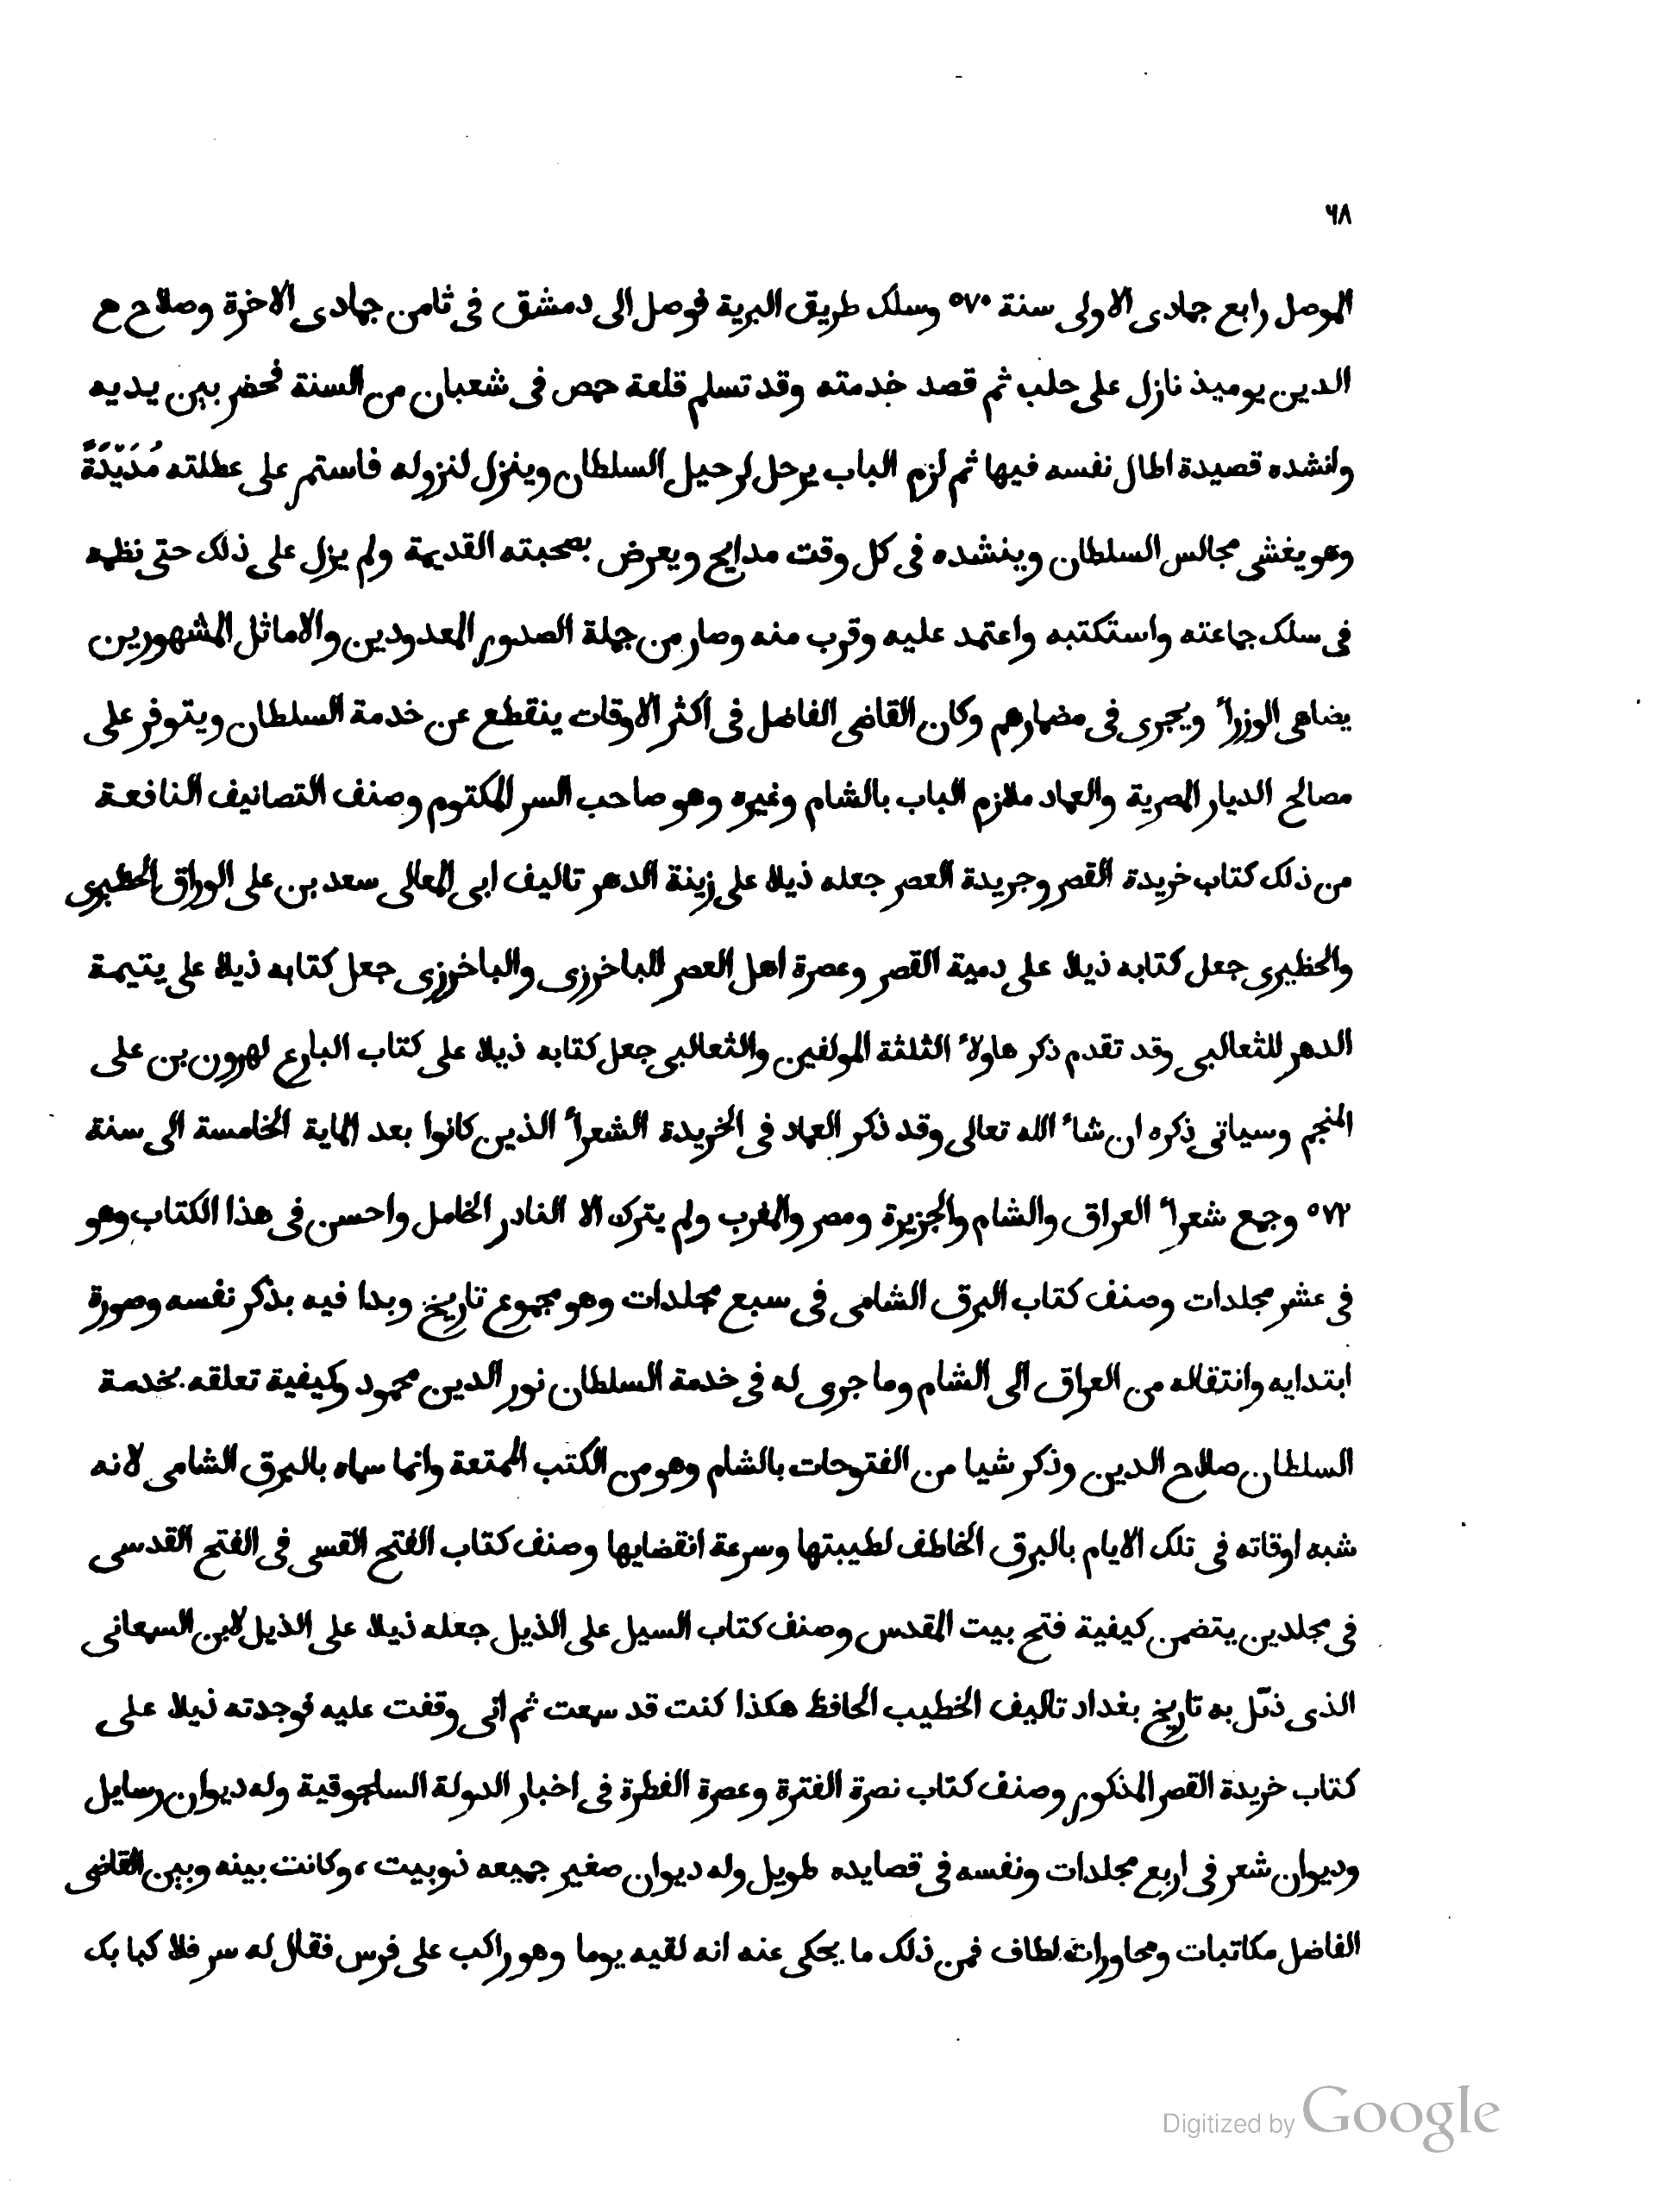 ٦٨
الموصل رابع جمادى الاولى سنة ٥٧٠ وسلك طريق البرية فوصل الى دمشق فى ثامن جمادى الاخرة وصلاح ح
الدين يوميذ نازل على حلب ثم قصد خدمته وقد تسلم قلعة حمص فى شعبان من السنة فحضر بين يديه
وانشده قصيدة اطال نفسه فيها ثم لزم الباب يرحل لرحيل السلطان وينزل لنزوله فاستمر على عطلته مُدَيّدَةً
وهو يغشى مجالس السلطان وينشده فى كل وقت مدايح ويعرض بصحبته القديمة ولم يزل على ذلك حتى نظمه
فى سلك جماعته واستكتبه واعتمد عليه وقرب منه وصار من جملة الصدور المعدودين والاماثل المشهورين
يضاهى الوزرأ ويجرى فى مضمارهم وكان القاضى الفاضل فى اكثر الاوقات ينقطع عن خدمة السلطان ويتوفر على
مصالح الديار المصرية والعماد ملازم الباب بالشام وغيره وهو صاحب السر المكتوم وصنف التصانيف النافعة
من ذلك كتاب خريدة القصر وجريدة العصر جعله ذيلا على زينة الدهر تاليف ابى المعالى سعد بن على الوراق الحظيرى
والحظيرى جعل كتابه ذيلا على دمية القصر وعصرة اهل العصر للباخرزى والباخرزى جعل كتابه ذيلا على يتيمة
الدهر للثعالبى وقد تقدم ذكر هاولأ الثلثة المولفين والثعالبى جعل كتابه ذيلا على كتاب البارع لهرون بن على
المنجم وسياتى ذكره ان شأ الله تعالى وقد ذكر العماد فى الخريدة الشعرأ الذين كانوا بعد الماية الخامسة الى سنة
٥٧٢ وجمع شعرأ العراق والشام والجزيرة ومصر والمغرب ولم يترك الا النادر الخامل واحسن فى هذا الكتاب وهو
فى عشر مجلدات وصنف كتاب البرق الشامى فى سبع مجلدات وهو مجموع تاريخ وبدا فيه بذكر نفسه وصورة
ابتدايه وانتقاله من العراق الى الشام وما جرى له فى خدمة السلطان نور الدين محمود وكيفية تعلقه بخدمة
السلطان صلاح الدين وذكر شيا من الفتوحات بالشام وهو من الكتب الممتعة وانما سماه بالبرق الشامى لانه
شبه اوقاته فى تلك الايام بالبرق الخاطف لطيبتها وسرعة انقضايها وصنف كتاب الفتح القسى فى الفتح القدسى
فى مجلدين يتضمن كيفية فتح بيت المقدس وصنف كتاب السيل على الذيل جعله ذيلا على الذيل لابن السمعانى
الذى ذيّل به تاريخ بغداد تاليف الخطيب الحافظ هكذا كنت قد سمعت ثم انى وقفت عليه فوجدته ذيلا على
كتاب خريدة القصر المذكور وصنف كتاب نصرة الفترة وعصرة الفطرة فى اخبار الدولة السلجوقية وله ديوان رسايل
وديوان شعر فى اربع مجلدات ونفسه فى قصايده طويل وله ديوان صغير جميعه ذوبيت، وكانت بينه وبين القاضى
الفاضل مكاتبات ومحاورات لطاف فمن ذلك ما يحكى عنه انه لقيه يوما وهو راكب على فرس فقال له سر فلا كبا بك
Digitized by Google